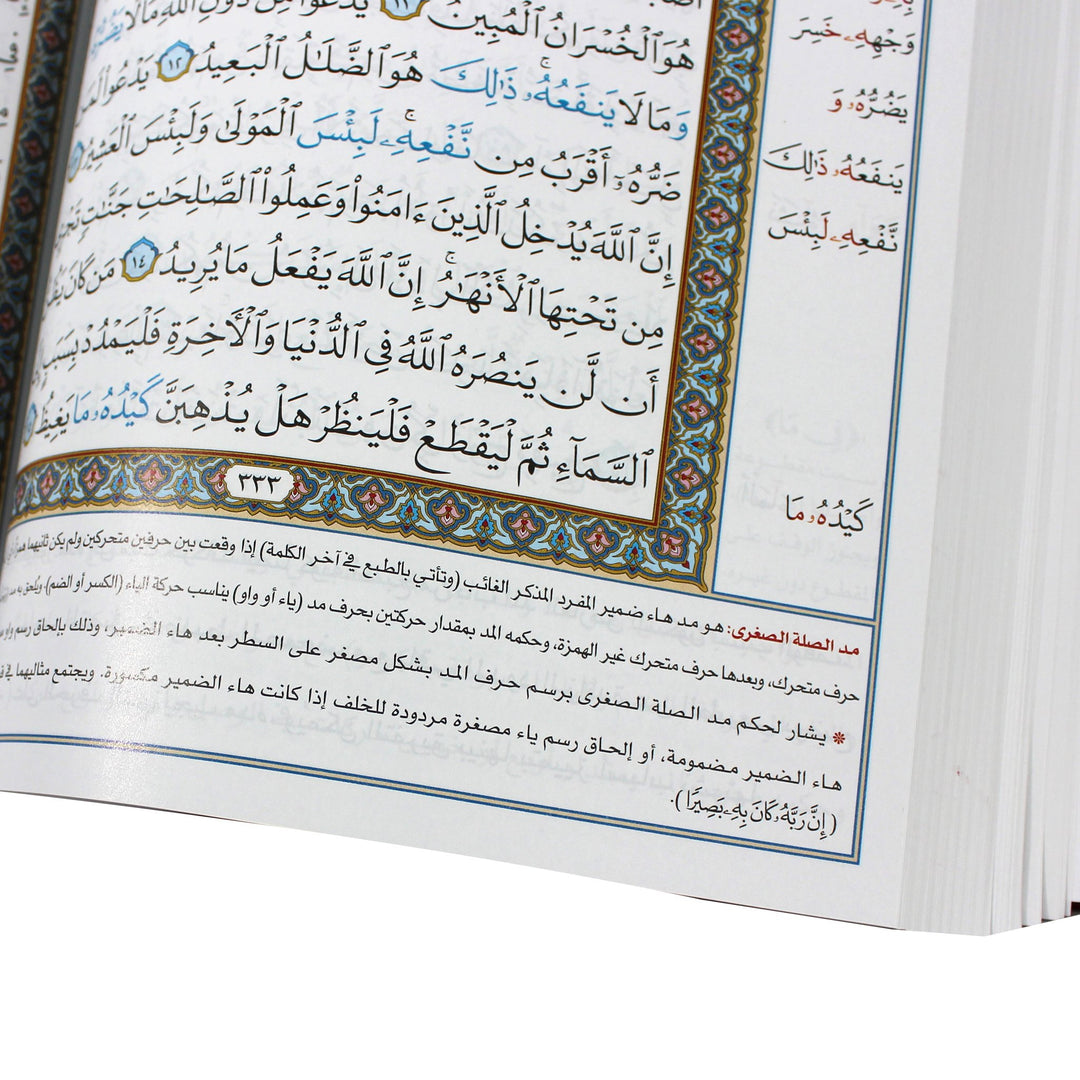 هُوَ ٱلْخُسْرَانُ ٱلْمُبِينُ ١١ يَدْعُوا۟ مِن دُونِ ٱللَّهِ مَا لَا يَضُرُّهُۥ
وَمَا لَا يَنفَعُهُۥ ۚ ذَٰلِكَ هُوَ ٱلضَّلَٰلُ ٱلْبَعِيدُ ١٢ يَدْعُوا۟ لَمَن
ضَرُّهُۥٓ أَقْرَبُ مِن نَّفْعِهِۦ ۚ لَبِئْسَ ٱلْمَوْلَىٰ وَلَبِئْسَ ٱلْعَشِيرُ
إِنَّ ٱللَّهَ يُدْخِلُ ٱلَّذِينَ ءَامَنُوا۟ وَعَمِلُوا۟ ٱلصَّٰلِحَٰتِ جَنَّٰتٍ
مِن تَحْتِهَا ٱلْأَنْهَٰرُ ۚ إِنَّ ٱللَّهَ يَفْعَلُ مَا يُرِيدُ ١٤ مَن كَانَ
أَن لَّن يَنصُرَهُ ٱللَّهُ فِى ٱلدُّنْيَا وَٱلْءَاخِرَةِ فَلْيَمْدُدْ بِسَبَبٍ
ٱلسَّمَآءِ ثُمَّ لْيَقْطَعْ فَلْيَنظُرْ هَلْ يُذْهِبَنَّ كَيْدُهُۥ مَا يَغِيظُ
٣٣٣
وَجْهِهِۦ خَسِرَ
يَضُرُّهُۥ وَ
يَنفَعُهُۥ ذَٰلِكَ
نَّفْعِهِۦ لَبِئْسَ
كَيْدُهُۥ مَا
مد الصلة الصغرى: هو مد هاء ضمير المفرد المذكر الغائب (وتأتي بالطبع في آخر الكلمة) إذا وقعت بين حرفين متحركين ولم يكن ثانيهما
حرف متحرك، وبعدها حرف متحرك غير الهمزة، وحكمه المد بمقدار حركتين بحرف مد (ياء أو واو) يناسب حركة الهاء (الكسر أو الضم)، ويلحق به مد
* يشار لحكم مد الصلة الصغرى برسم حرف المد بشكل مصغر على السطر بعد هاء الضمير، وذلك بإلحاق رسم واو
هاء الضمير مضمومة، أو إلحاق رسم ياء مصغرة مردودة للخلف إذا كانت هاء الضمير مكسورة. ويجتمع مثاليهما في
(إِنَّ رَبَّهُۥ كَانَ بِهِۦ بَصِيرًا).